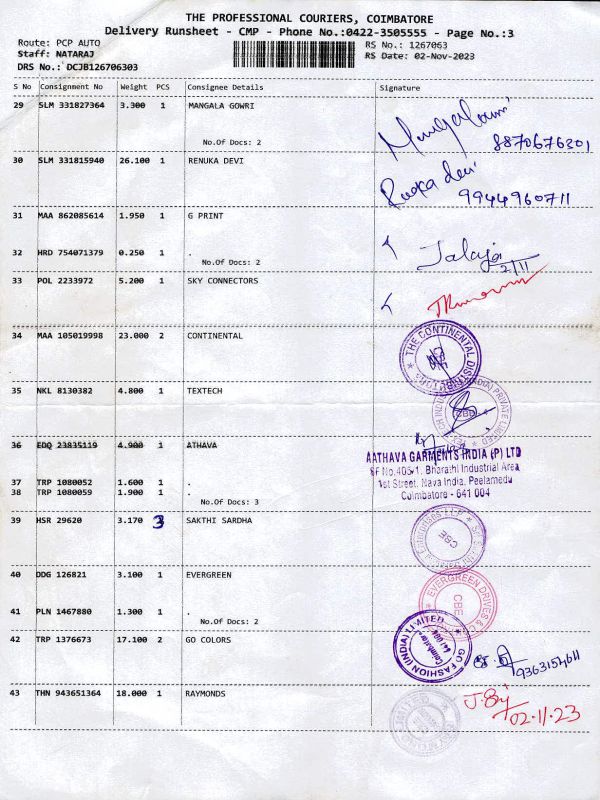 THE PROFESSIONAL COURIERS, COIMBATORE
Delivery Runsheet - CMP - Phone No.:0422-3505555 - Page No.:3
Route: PCP AUTO
RS No.: 1267063
Staff: NATARAJ
RS Date: 02-Nov-2023
DRS No.: DCJB126706303
S No Consignment No Weight PCS Consignee Details Signature
29 SLM 331827364 3.300 1 MANGALA GOWRI
No.Of Docs: 2
8870676301
30 SLM 331815940 26.100 1 RENUKA DEVI
devi
9944960711
31 MAA 862085614 1.950 1 G PRINT
32 HRD 754071379 0.250 1 .
No.Of Docs: 2
Jalaja
2/11
33 POL 2233972 5.200 1 SKY CONNECTORS
34 MAA 105019998 23.000 2 CONTINENTAL
THE CONTINENTAL DISTRIBUTORS
35 NKL 8130382 4.800 1 TEXTECH
CBD
36 EDQ 23835119 4.900 1 ATHAVA
AATHAVA GARMENTS INDIA (P) LTD
SF No.405/1, Bharathi Industrial Area
1st Street, Nava India, Peelamedu
Coimbatore - 641 004
37 TRP 1080052 1.600 1 .
38 TRP 1080059 1.900 1 .
No.Of Docs: 3
39 HSR 29620 3.170 3 SAKTHI SARDHA
CBE
40 DDG 126821 3.100 1 EVERGREEN
EVERGREEN DRIVES &
CBE
41 PLN 1467880 1.300 1 .
No.Of Docs: 2
42 TRP 1376673 17.100 2 GO COLORS
GO FASHION (INDIA) LIMITED
Coimbatore
641 004
43 THN 943651364 18.000 1 RAYMONDS
02.11.23